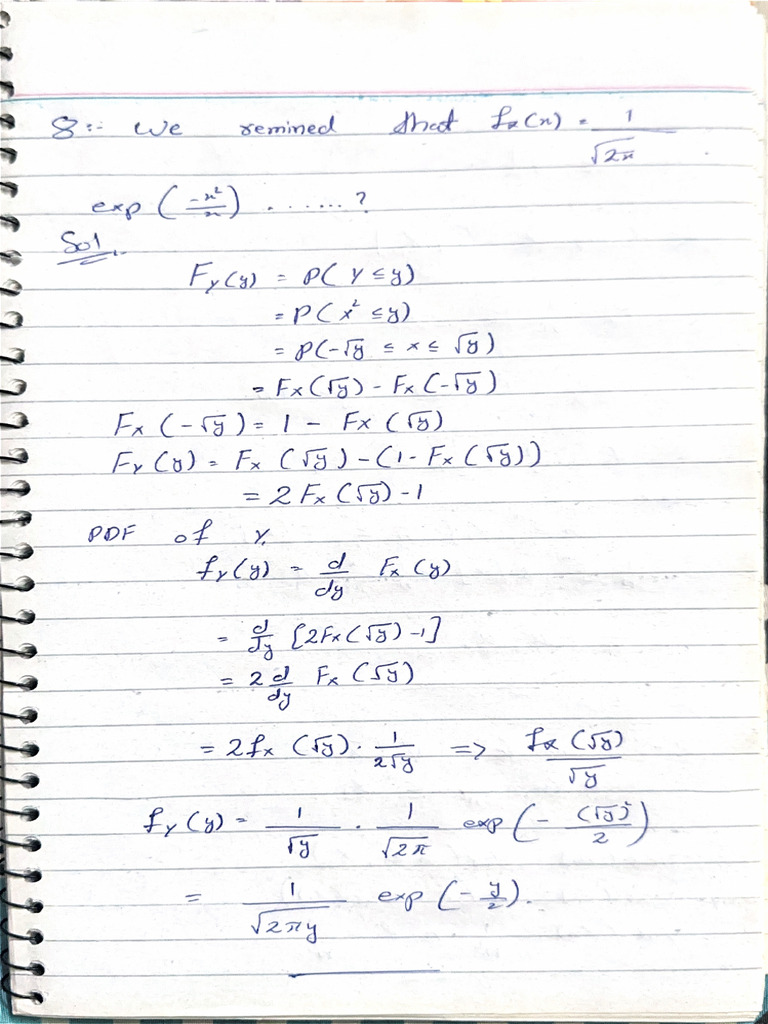 8:- We remined that fx(x) = 1/√2π
exp (-x²/x) . ...... ?
Sol.
Fy(y) = P( Y ≤ y)
= P( x² ≤ y)
= P(-√y ≤ x ≤ √y)
= Fx(√y) - Fx(-√y)
Fx (-√y) = 1 - Fx (√y)
Fy (y) = Fx (√y) - (1 - Fx (√y))
= 2 Fx (√y) - 1
PDF of Y.
fy(y) = d/dy Fx (y)
= d/dy [2Fx(√y) -1]
= 2 d/dy Fx (√y)
= 2fx (√y) . 1/2√y => fx (√y)/√y
fy (y) = 1/√y . 1/√2π exp (- (√y)²/2)
= 1/√2πy exp (- y/2).